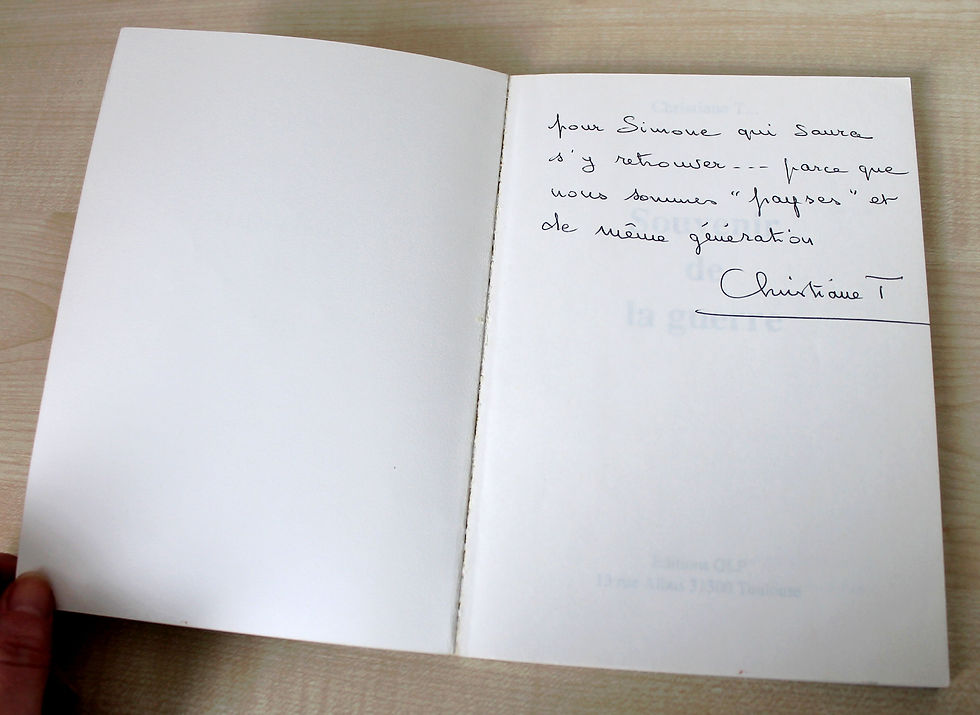 pour Simone qui saura
s'y retrouver --- parce que
nous sommes "payses" et
de même génération
Christiane T
Christiane T...
Souvenir
de
la guerre
31300 Toulouse